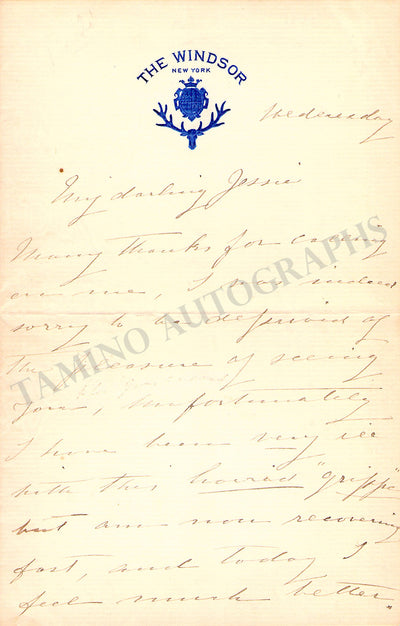 THE WINDSOR
NEW YORK
Wednesday
My darling Jessie
Many thanks for coming
on me, I was indeed
sorry to be deprived of
the pleasure of seeing
you, unfortunately
I have been very ill
with this horrid "grippe"
but am now recovering
fast, and today I
feel much better.
TAMINO AUTOGRAPHS